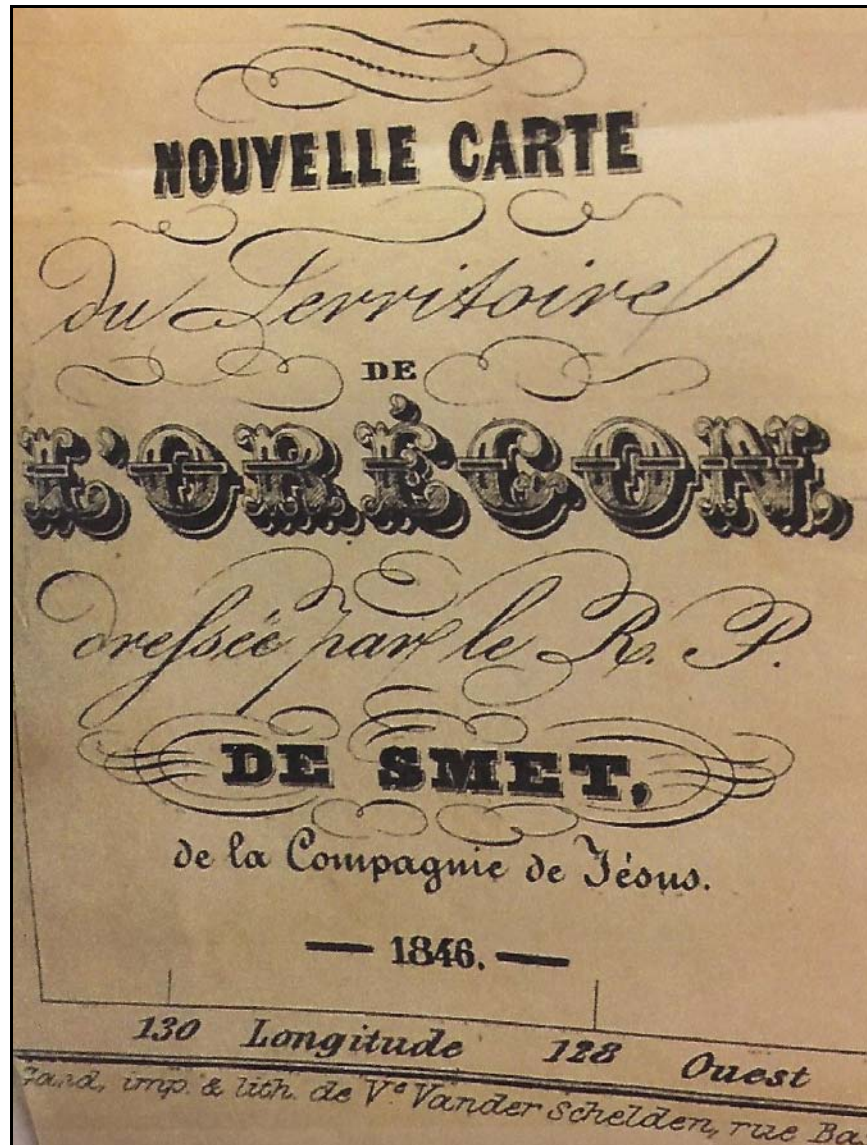 NOUVELLE CARTE
du Territoire
DE
L'ORÉGON,
dressée par le R. P.
DE SMET,
de la Compagnie de Jésus.
— 1846. —
130 Longitude 128 Ouest
Gand, imp. & lith. de Vᵉ Vander Schelden, rue